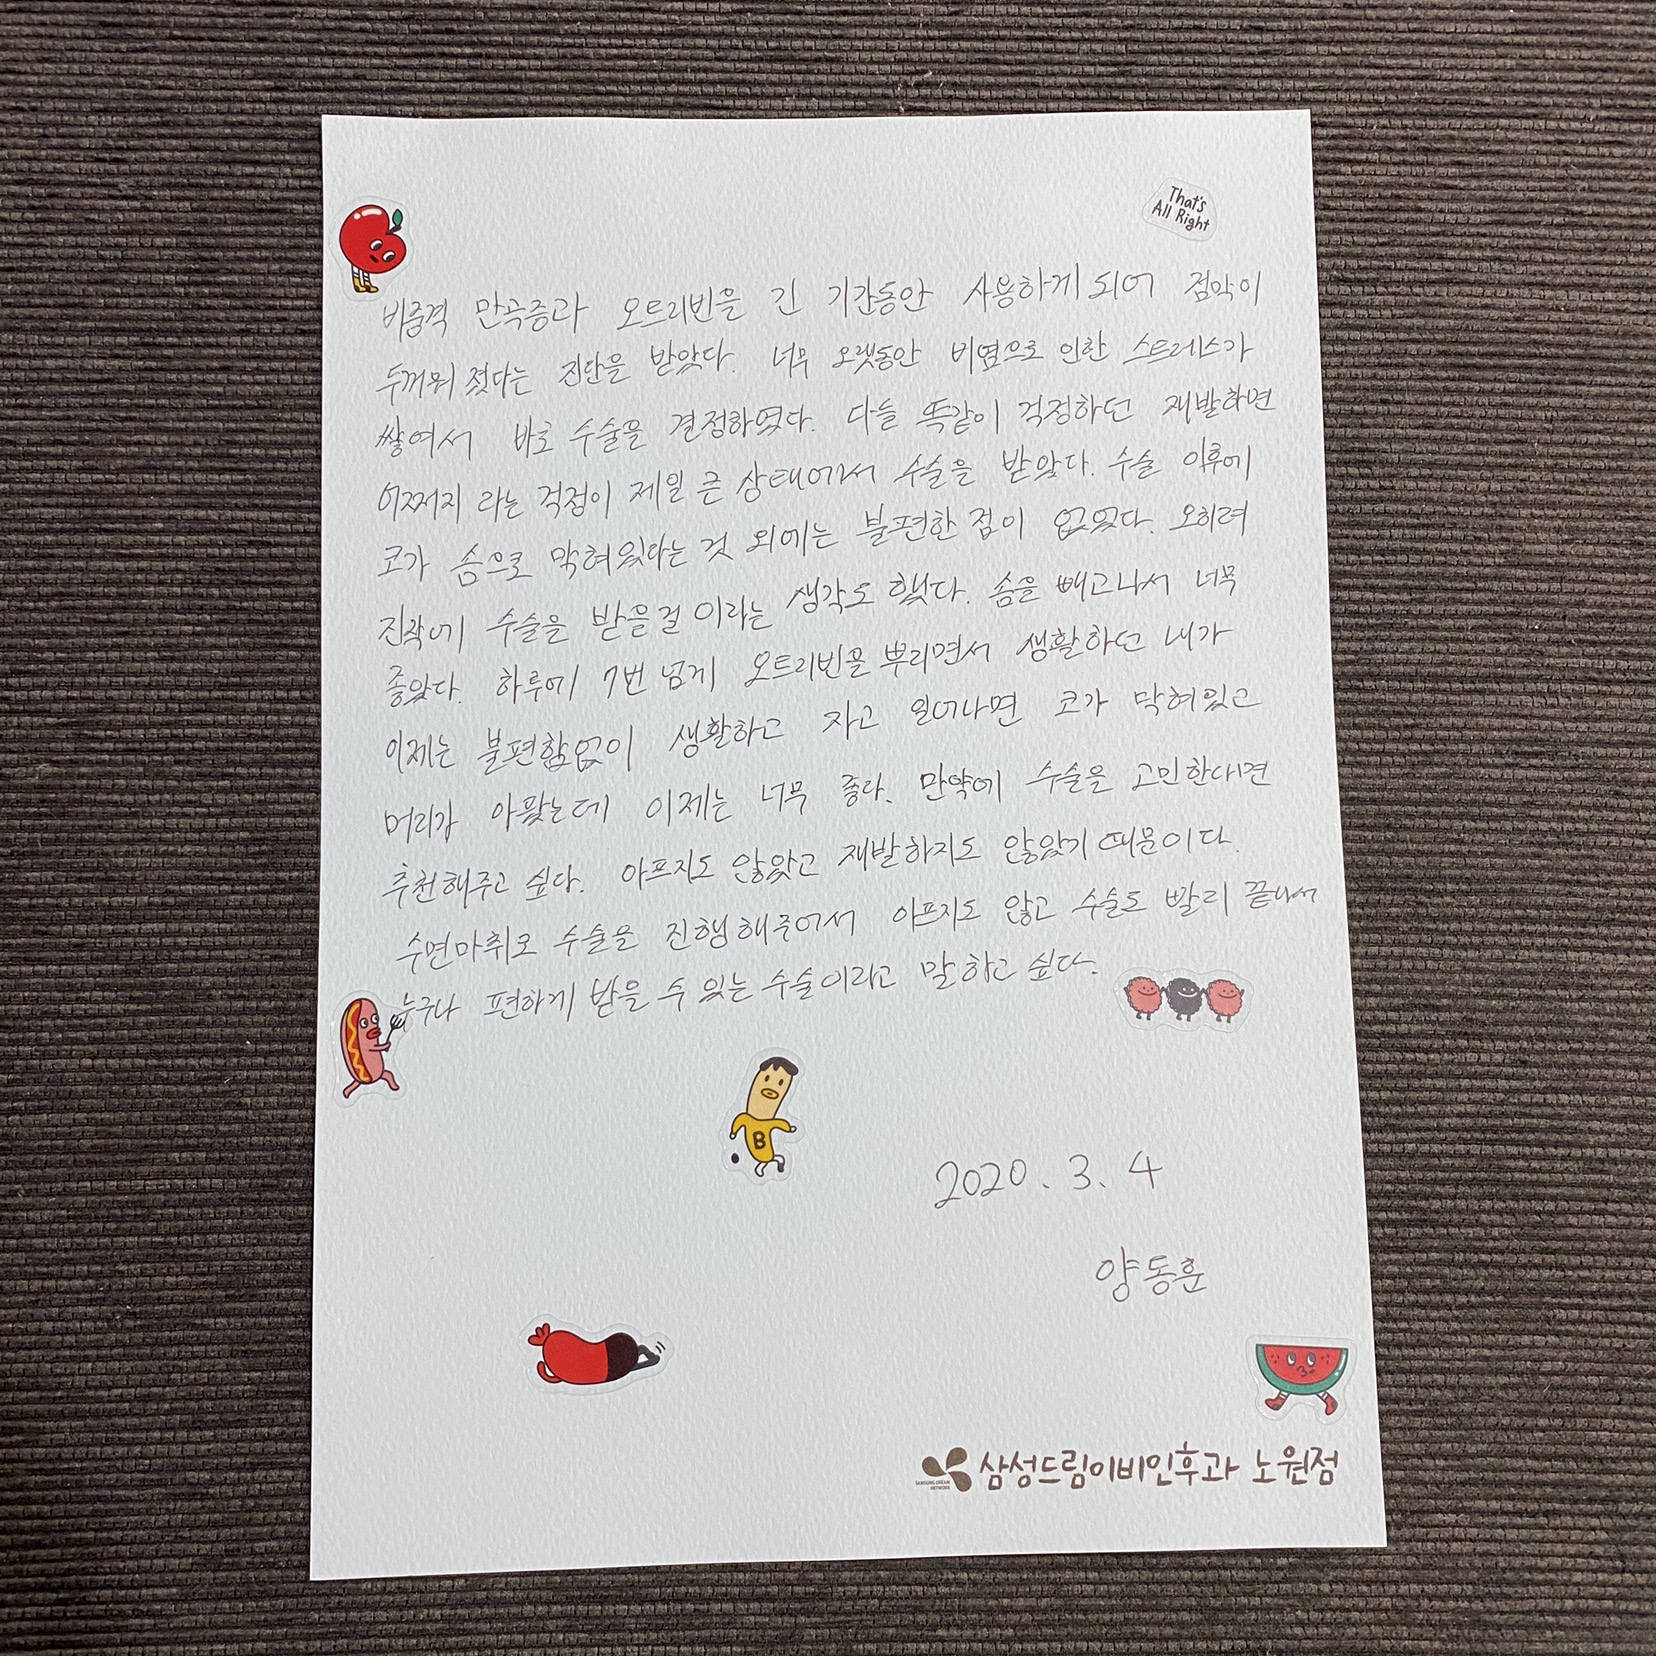 That's
All Right
비중격 만곡증과 오트리빈을 긴 기간동안 사용하게 되어 점막이
두꺼워 졌다는 진단을 받았다. 너무 오랫동안 비염으로 인한 스트레스가
쌓여서 바로 수술을 결정하였다. 다들 똑같이 걱정하던 재발하면
어쩌지 라는 걱정이 제일 큰 상태에서 수술을 받았다. 수술 이후에
코가 솜으로 막혀있다는 것 외에는 불편한 점이 없었다. 오히려
진작에 수술을 받을걸 이라는 생각도 했다. 솜을 빼고나서 너무
좋았다. 하루에 7번 넘게 오트리빈을 뿌리면서 생활하던 내가
이제는 불편함없이 생활하고 자고 일어나면 코가 막혀있고
머리가 아팠는데 이제는 너무 좋다. 만약에 수술을 고민한다면
추천해주고 싶다. 아프지도 않았고 재발하지도 않았기 때문이다.
수면마취로 수술을 진행해주어서 아프지도 않고 수술도 빨리 끝나서
누구나 편하게 받을 수 있는 수술이라고 말하고 싶다.
B
2020. 3. 4
양동훈
SAMSUNG DREAM
NETWORK
삼성드림이비인후과 노원점